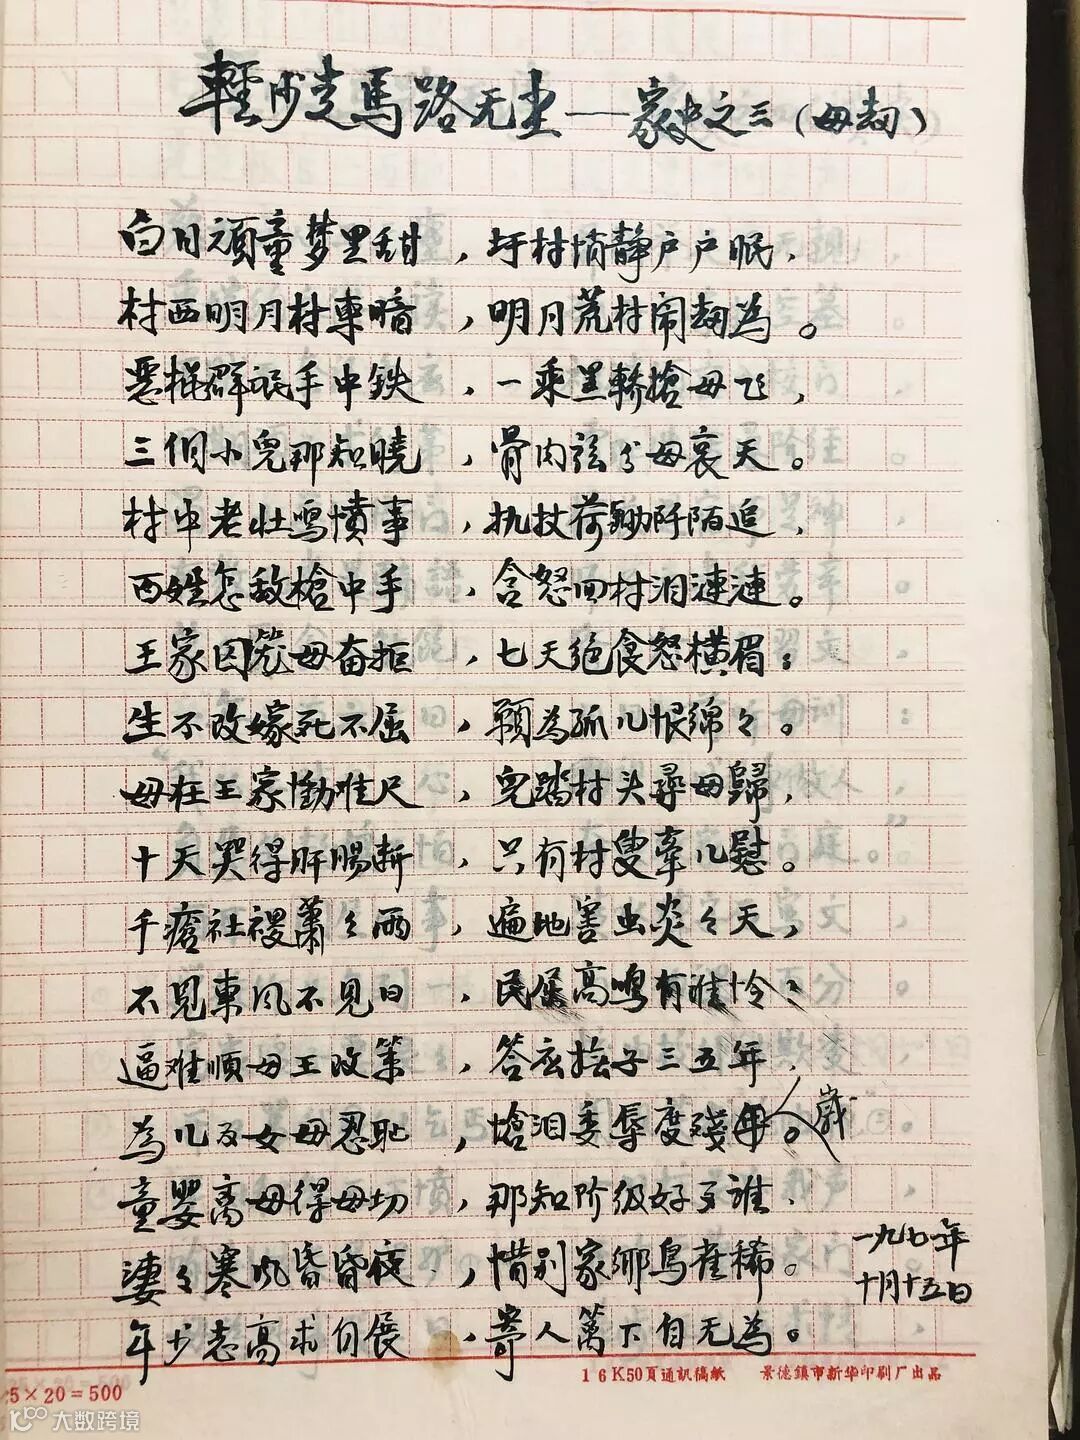 輕沙走馬路无尘——家史之三（母劫）
白日頑童梦里甜，圩村悄静户户眠，
村西明月村東暗，明月荒村闹劫為。
惡棍群氓手中鉄，一乘黑轎搶母飞，
三個小兒那知曉，骨肉兹分母哀天。
村中老壮鸣憤事，执扙荷鋤阡陌追，
百姓怎敌槍中手，含怒回村泪漣漣。
王家囚笼母奋拒，七天絶食怒横眉；
生不改嫁死不屈，願為孤儿恨綿々。
母在王家慟难尺，兒踏村头尋母歸，
十天哭得肝腸斬，只有村叟牵儿慰。
千瘡社稷蕭々雨，遍地害虫炎々天，
不見東风不見日，民屋高鳴有谁怜？
逼难順母王改策，答应撫子三五年，
為儿及女母忍耻，愴泪委辱度殘年。歲
童嬰离母得母切，那知阶级好歹谁，
凄々寒风昏昏夜，惜别家鄉鳥雀稀。
一九七一年
十月十五日
年少志高求自展，寄人篱下自无為。
16K50頁通訊稿紙 景德鎮市新华印刷厂出品
25×20=500
大数跨境